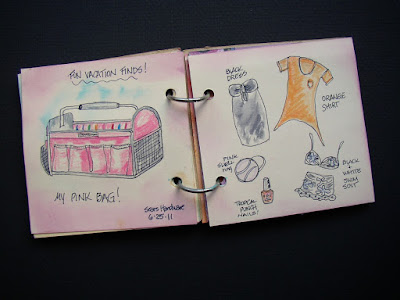 FUN VACATION FINDS!
MY PINK BAG!
Sears Hardware
6-25-11
BLACK
DRESS
ORANGE
SHIRT
PINK
SHELL
TROPICAL
PUNCH
NAILS!
BLACK
+
WHITE
SWIM
SUIT